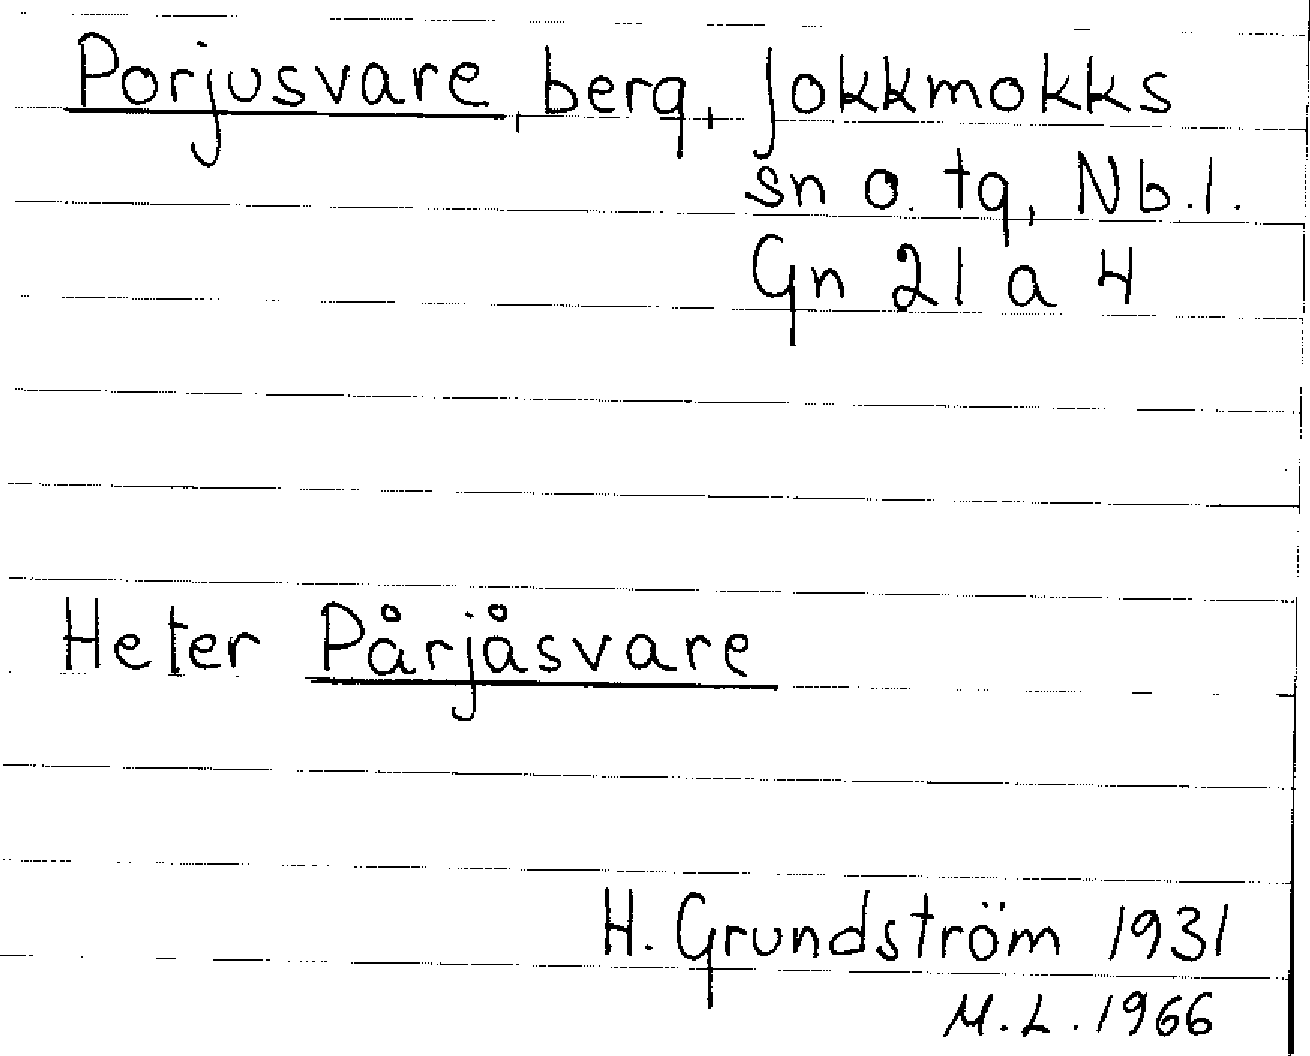 Porjusvare, berg, Jokkmokks
sn o. tg, Nb.l.
Gn 21 a 4
Heter Pårjåsvare
H. Grundström 1931
M.L. 1966